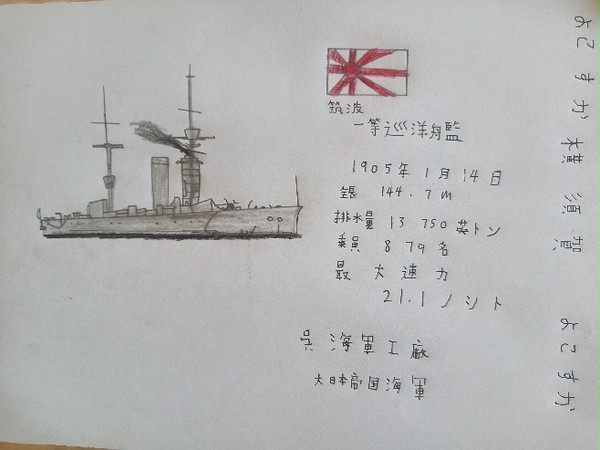 筑波
一等巡洋艦
1905年1月14日
全長 144.7m
排水量 13 750英トン
乗員 879名
最大速力
21.1ノット
呉海軍工廠
大日本帝国海軍
よこすか 横須賀 よこすか